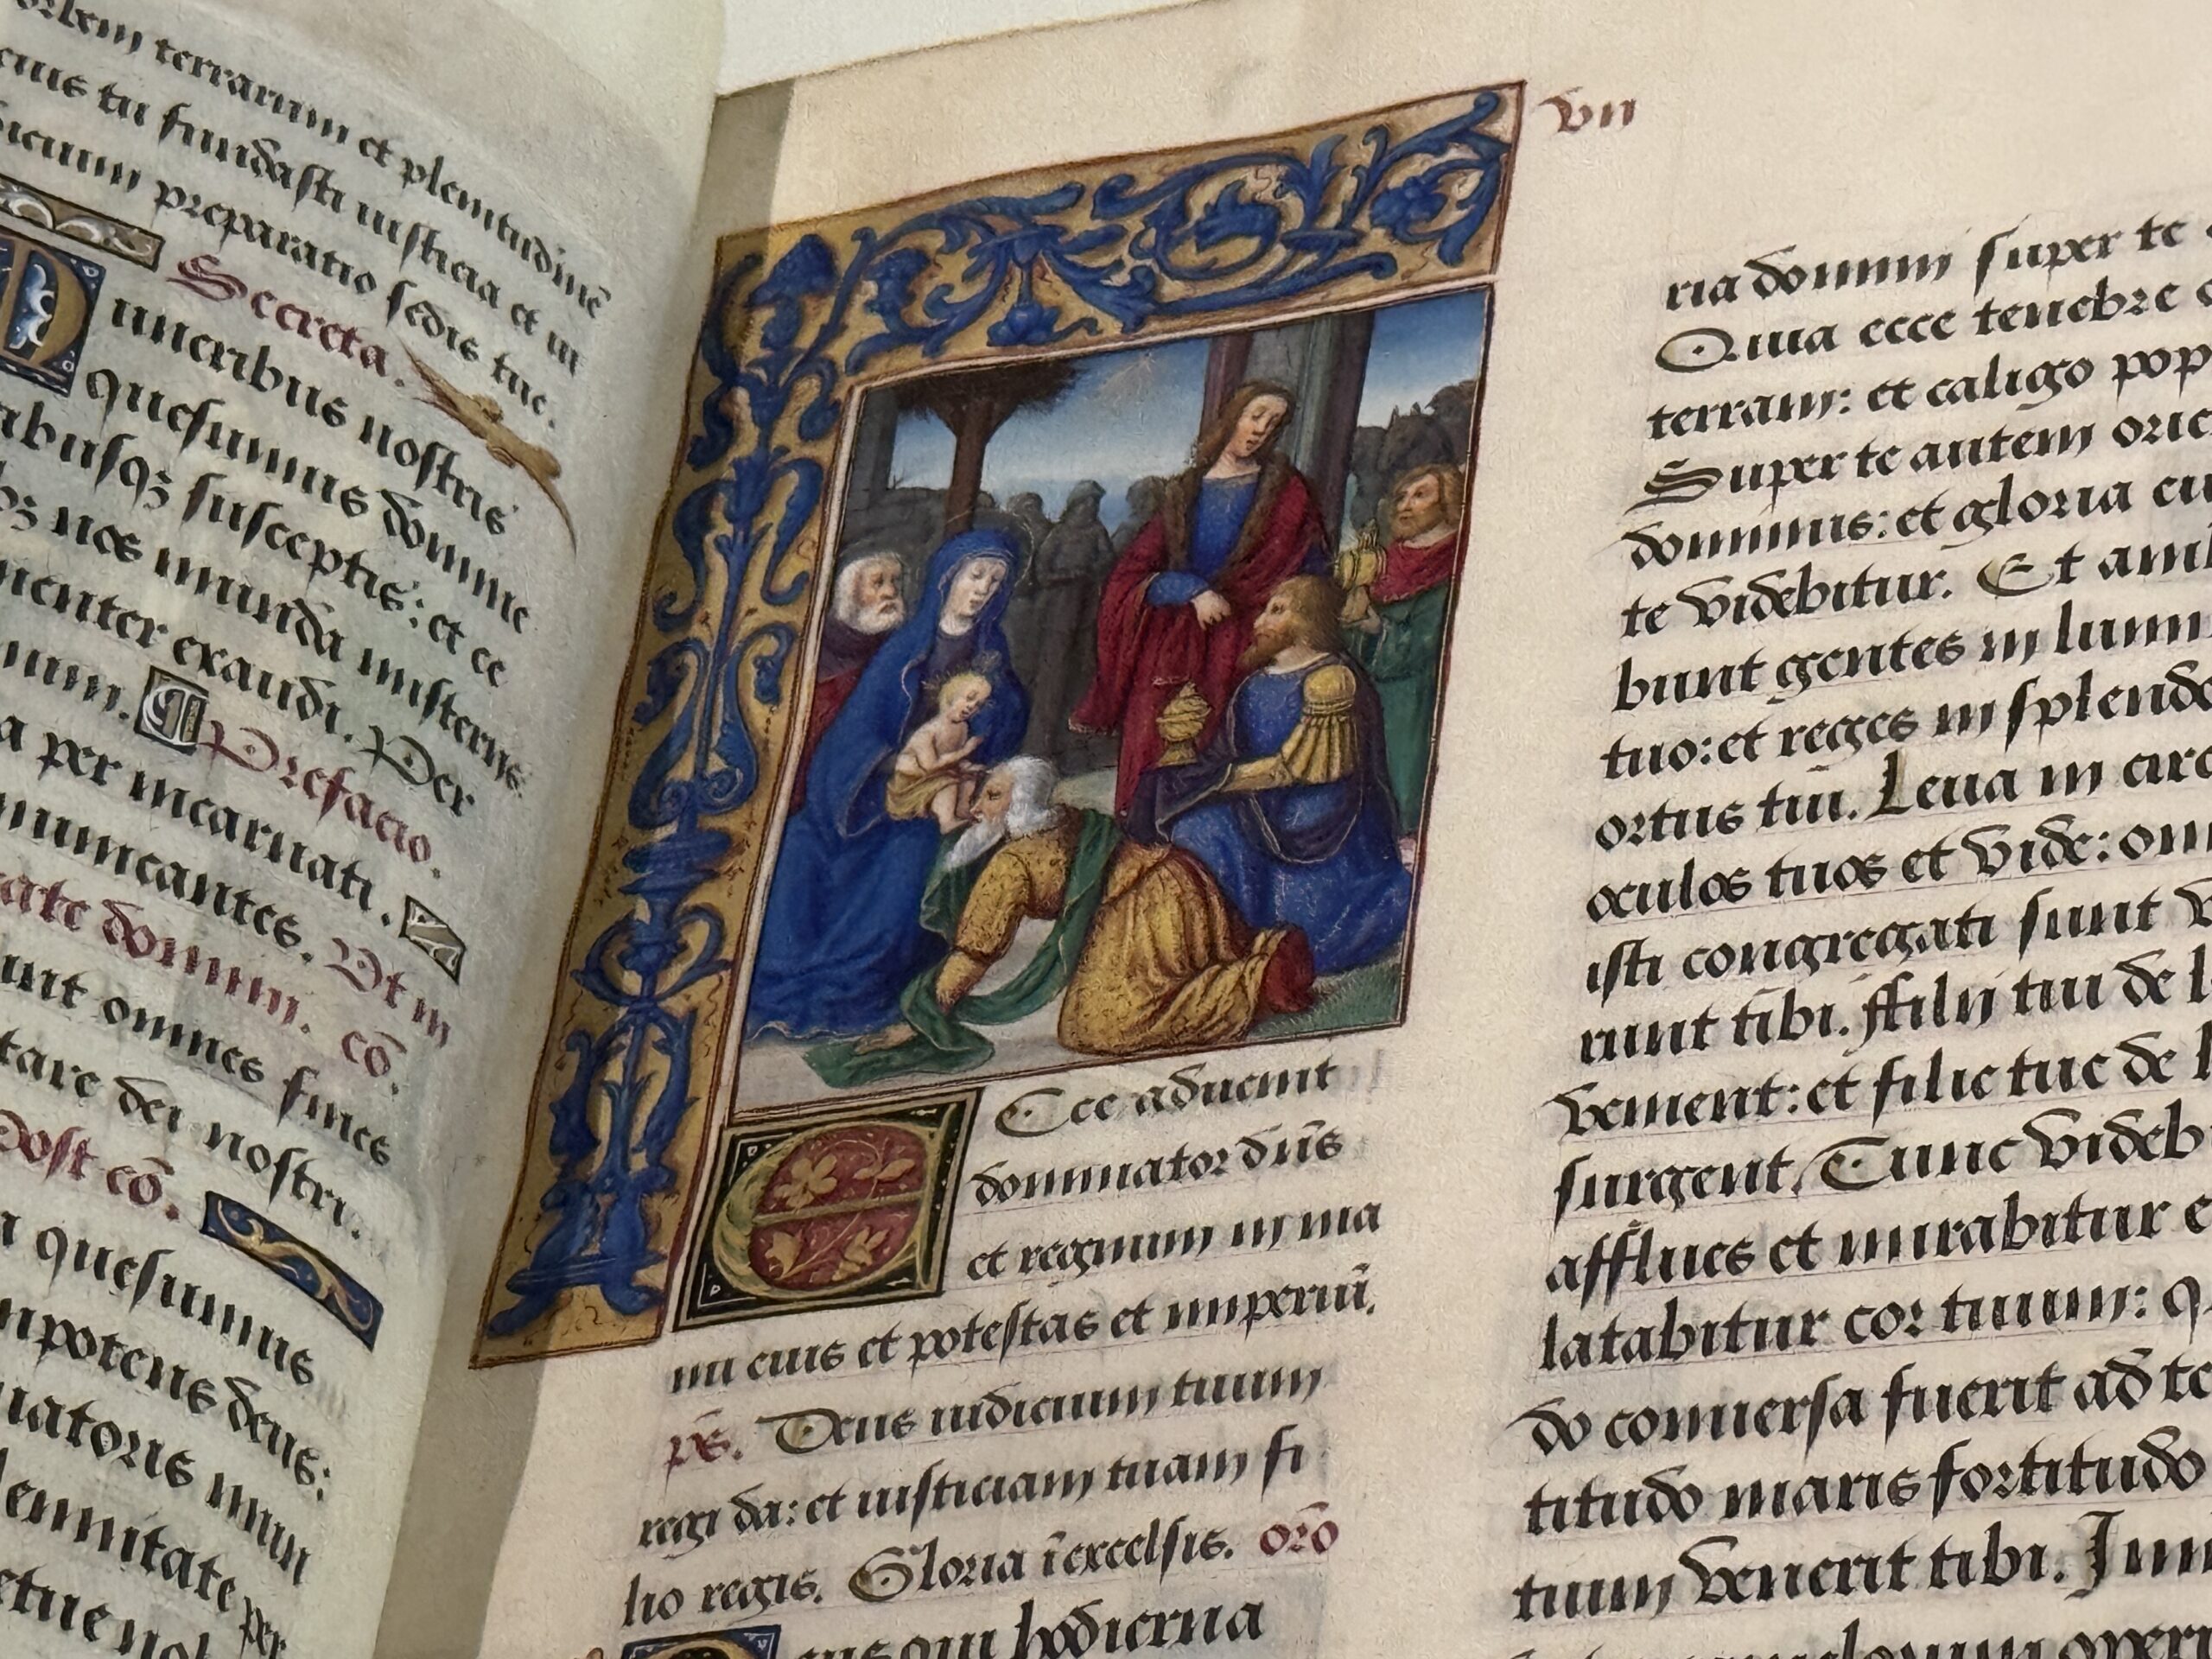 orbem terrarum et plenitudinē
eius tu fundasti iusticia et iu
dicium preparatio sedis tue.
Secreta.
Muneribus nostris
quesumus domine
ibusqꝫ susceptis: et ce
nos munda misteriis
menter exaudi. Per
num. Prefacio.
a per incarnati.
municantes. Ut in
domini. cō.
unt omnes fines
tare dei nostri.
Post cō.
a quesumus
mpotens deus:
natoris mun
lemnitate per
etue no
vii
Ecce aduenit
dominator dn̄s
et regnum in ma
nu eius et potestas et imperiū.
pš. Deus iudicium tuum
regi da: et iusticiam tuam fi
lio regis. Gloria ī excelsis. orō
Deus qui hodierna
ria domini super te
Quia ecce tenebre
terram: et caligo pop
Super te autem orie
dominus: et gloria eiu
te videbitur. Et amb
bunt gentes in lumi
tuo: et reges in splende
ortus tui. Leua in circ
oculos tuos et vide: om
isti congregati sunt v
runt tibi. ffilij tui de l
venient: et filie tue de l
surgent. Tunc videb
afflues et mirabitur e
latabitur cor tuum: q
do conuersa fuerit ad te
titudo maris fortitudo
tuum venerit tibi. Inun